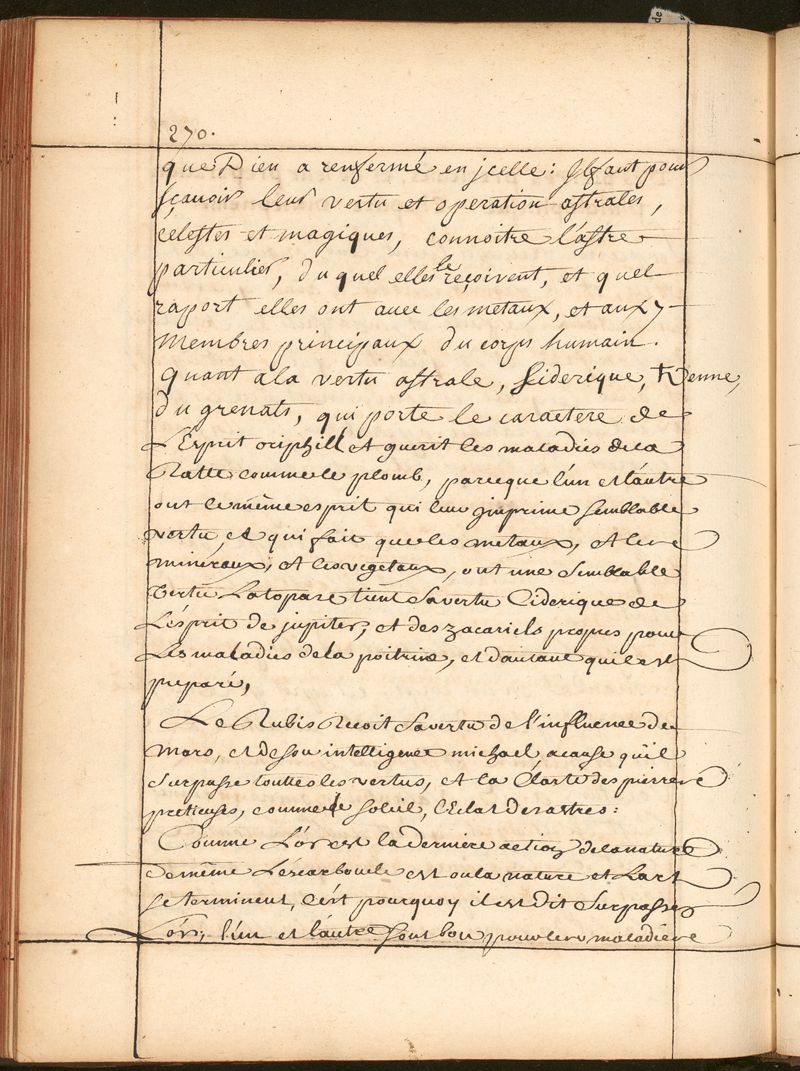 270.
que Dieu a renfermé en jcelle: Il faut pour
sçauoir leur vertu et operation astrales,
celestes et magiques, connoitre l'astre
particulier, du quel elles le reçoivent, et quel
raport elles ont auec les metaux, et aux 7
membres principaux du corps humain.
Quant a la vertu astrale, siderique,
du grenats, qui porte le caractere de
L'Esprit oriphill et guerit les maladies de la
Ratte comme le plomb, parceque l'un et l'autre
ont le même esprit qui leur jmprime semblable
vertu et qui fait que les metaux, et les
mineraux, et les vegetaux, ont une semblable
vertu La topase tient sa vertu Ciderique de
L'esprit de jupiter, et des zacariels propres pour
Les maladies de la poitrine, et dautant qu'il est
preparé,
Le Rubis Recoit sa vertu de l'influence de
Mars, et de son intelligence michael acause qu'il
surpasse touttes les vertus, et la Clarté des pierres
pretieuses, comme le soleil, l'Eclat des astres:
Comme L'or est la derniere action de la nature
de même L'escarboucle est ou la nature et L'art
se terminent, C'est pourquoy il est dit surpasser
L'or, l'un et l'autre sont bon pour les maladies
de